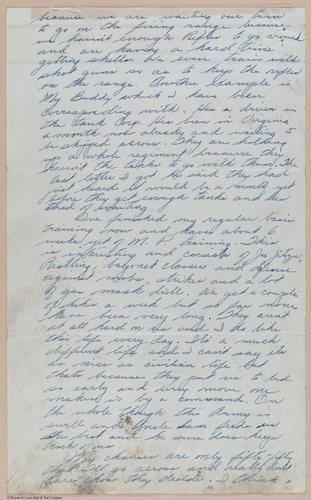 because we are waiting our turn
to go on the firing range because
we haven't enough Rifles to go around
and are having a hard time
getting shells. We even train with
shot guns so as to keep the rifles
on the range. Another example is
My Buddy which I have been
corresponding with. Hes a driver in
the Tank Corp. Hes been in Virginia
a month now already and waiting to
be shipped across. They are holding
up a whole regiment because they
haven't the tanks to go with them. The
last letter I got he said they had
just heard it would be a month yet
before they get enough tanks and hes
tired of waiting.
I've finished my regular basic
training now and have about 6
weeks yet of M. P. training. This
is interesting and consists of Jiu Jitzu,
bayonet classes and defense
against mobs, strikes and a lot
of gas mask drill. We get a couple
of hikes a week but so far none
have been very long. They arent
at all hard on us and I do like
this life every day. It's a much
different life and I cant say its
as nice as civilian life but
thats because they put us to bed
so early and every move one
makes is by a command. On
the whole though the Army is
swell and Uncle Sam feeds us
the best and he sure does
They chances are only fifty fifty
that I'll go across and I really dont
care how they decide. I think